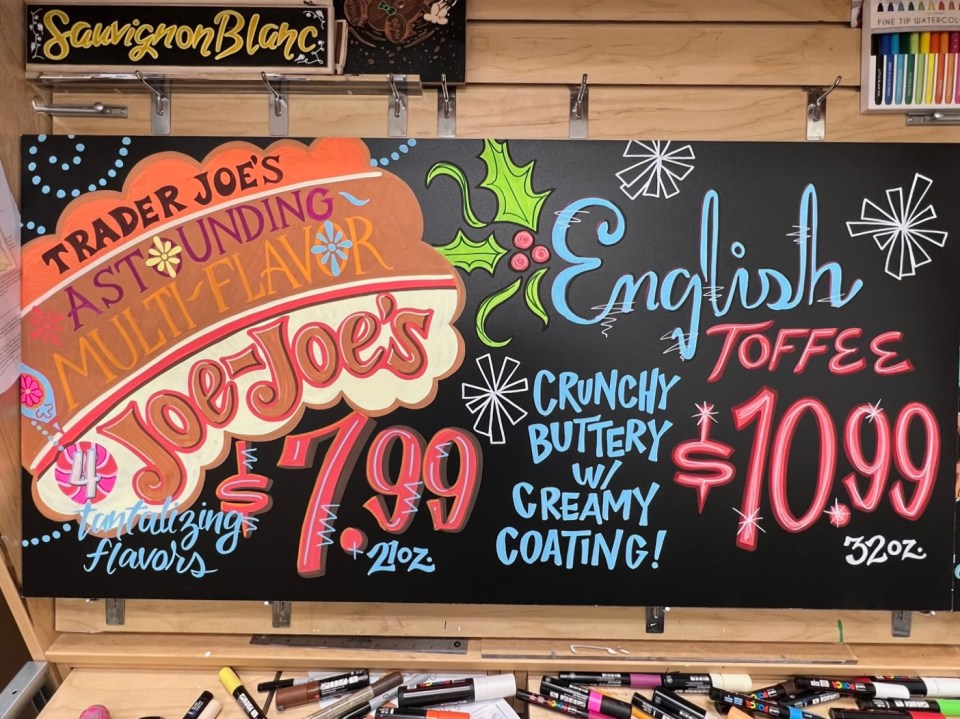 Sauvignon Blanc
FINE TIP WATERCOLO
TRADER JOE'S
ASTOUNDING
MULTI-FLAVOR
JOE-JOE'S
4
tantalizing
flavors
$7.99
21oz.
English
TOFFEE
CRUNCHY
BUTTERY
W/
CREAMY
COATING!
$10.99
32oz.